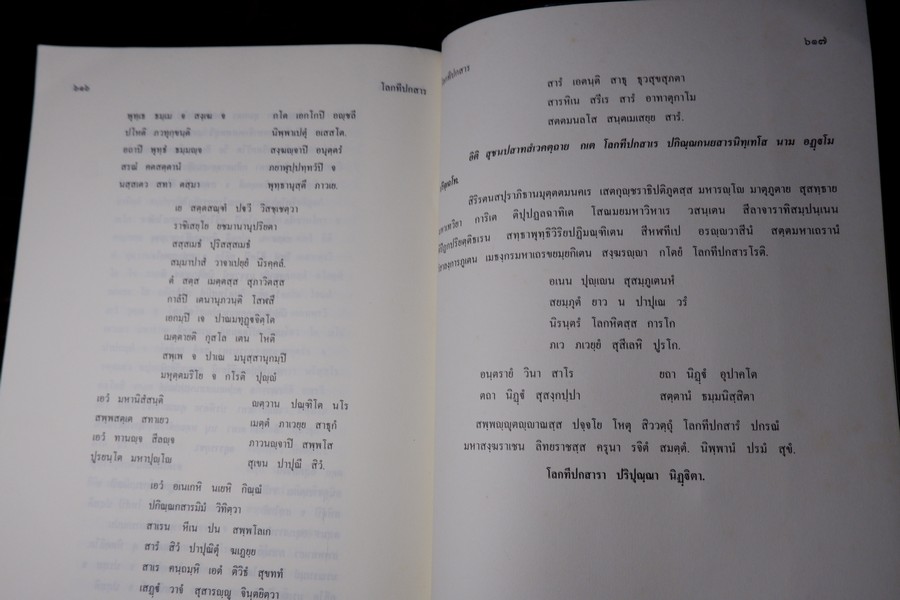 ๖๑๖ โลกทีปกสาร
พุทฺเธ ธมฺเม จ สงฺเฆ จ กโต เอกโกปิ อญฺชลี
ปโหติ ภวทุกฺขนฺติ นิพฺพาเปตุํ อเสสโต.
อถาปิ พุทฺธํ ธมฺมญฺจ สงฺฆญฺจาปิ อนุตฺตรํ
สรณํ คตสตฺตานํ ภยาพุปฺปทฺทวํปิ จ
นสฺสเตว สทา ตสฺมา พุทฺธานุสฺตึ ภาวเย.
เย สตฺตสณฺฑํ ปฐวึ วิสชฺเชตฺวา
ราชิสโย ยชมานานุปริยตา
สสฺสเมธํ ปุริสสฺสเมธํ
สมฺมาปาสํ วาจาเปยฺยํ นิรคฺคลํ.
ตํ สตฺส เมตฺตสฺส สุภาวิตสฺส
กาลํปิ เตนานุภวนฺติ โสฬสึ
เอกมฺปิ เจ ปาณมทุฏฺฐจิตฺโต
เมตฺตายติ กุสโล เตน โหติ
สพฺเพ จ ปาเณ มนุสฺสานุกมฺปี
มหุตฺตมริโย จ กโรติ ปุญฺญํ
เอวํ มหานิสํสนฺติ ญตฺวาน ปณฺฑิโต นโร
สพฺพสตฺเต สทาเยว เมตฺตํ ภาเวยฺย สาธุกํ
เอวํ ทานญฺจ สีลญฺจ ภาวนญฺจาปิ สพฺพโส
ปูรยนฺโต มหาปุญฺโญ สุเขน ปาปุณี สิวํ.
เอวํ อเนเกหิ นเยหิ กิณฺณํ
ปกิณฺณกสารมิมํ วิทิตฺวา
สาเรน หีเน ปน สพฺพโลเก
สารํ สิวํ ปาปุณิตุํ ฆเฏยฺย
สาเร คนฺถมฺหิ เอตํ ติวิธํ สุขทํ
เสฏฺฐํ วาจํ สุสารญฺญู จินฺตยิตฺวา
โลกทีปกสาร ๖๑๗
สารํ เอตนฺติ สาธุ ธุวสุขสุภตา
สารหิเน สรีเร สารํ อาทาตุกาโม
สตตมนลโส สนฺตเมเสยฺย สารํ.
อิติ สุชนปฺปสาทสํเวคตฺถาย กเต โลกทีปกสาเร ปกิณฺณกนยสารนิทฺเทโส นาม อฏฺฐโม
ปริจฺเฉโท.
สิริรตนสปุราภิธานมุตฺตมนคเร เสตกุญฺชราธิปติภูตสฺส มหารญฺโญ มาตุภูตาย สุสทฺธาย
การิเต ติปุปฏลฉาทิเต โสณฺณมยมหาวิหาเร วสนฺเตน สีลาจาราทิสมฺปนฺเนน
สทฺธาพุทฺธิวิริยปฏิมณฺฑิเตน สีหฬทีเป อรญฺญวาสีนํ สตฺตมเถรานํ
เมธงฺกรมหาเถรขยมฺยกิเตน สงฺฆรญฺญา กโตยํ โลกทีปกสาโรติ.
อเนน ปุญฺเญน สุสมฺภูเตนหํ
สยมฺภุตํ ยาว น ปาปุเณ วรํ
นิรนฺตรํ โลกหิตสฺส การโก
ภเว ภเวยฺยํ สุสีเลหิ ปูรโก.
อนฺตรายํ วินา สาโร ยถา นิฏฺฐํ อุปาคโต
ตถา นิฏฺฐํ สุสงฺกปฺปา สตฺตานํ ธมฺมนิสฺสิตา
สพฺพญฺญุตญฺญาณสฺส ปจฺจโย โหตุ สิววตฺถุํ โลกทีปกสารํ ปกรณํ
มหาสงฺฆราเชน ลิทยราชสฺส ครุนา รจิตํ สมตฺตํ. นิพฺพานํ ปรมํ สุขํ.
โลกทีปกสารา ปริปุณฺณา นิฏฺฐิตา.